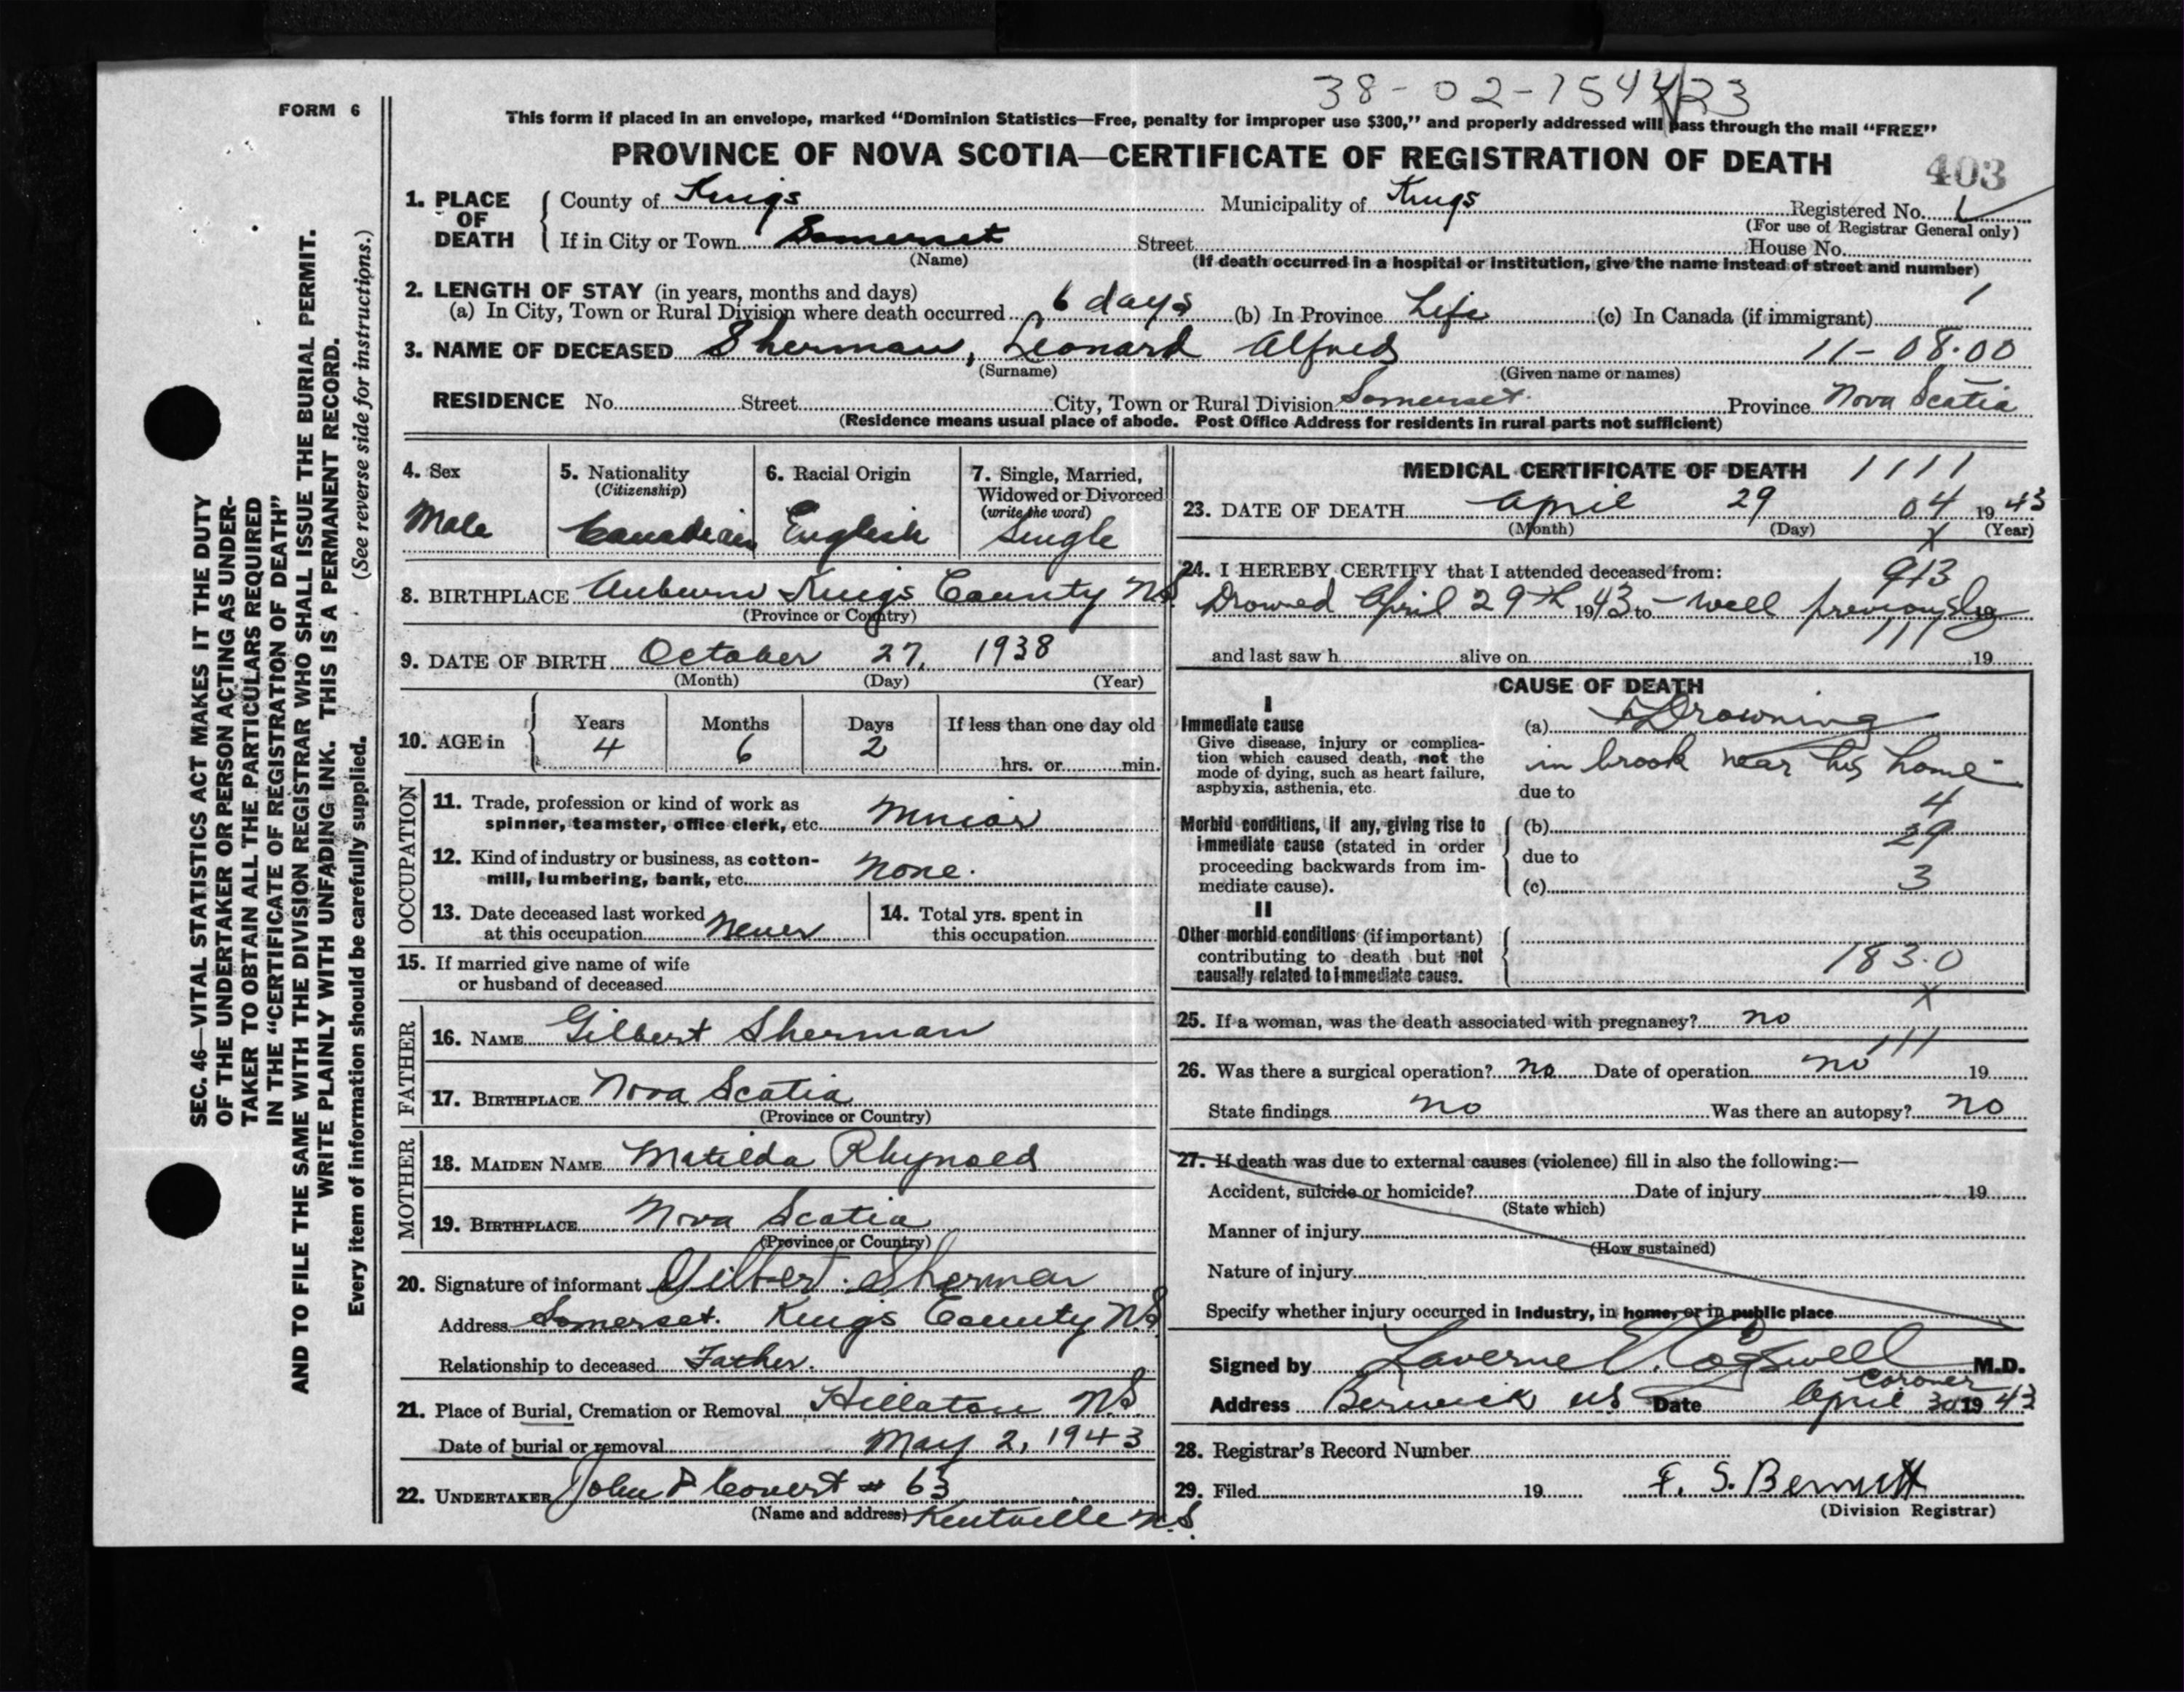 38-02-154423
FORM 6
This form if placed in an envelope, marked "Dominion Statistics—Free, penalty for improper use $300," and properly addressed will pass through the mail "FREE"
PROVINCE OF NOVA SCOTIA—CERTIFICATE OF REGISTRATION OF DEATH
403
1. PLACE OF DEATH
County of Kings Municipality of Kings Registered No.
(For use of Registrar General only)
If in City or Town Somerset Street House No.
(Name) (If death occurred in a hospital or institution, give the name instead of street and number)
2. LENGTH OF STAY (in years, months and days)
(a) In City, Town or Rural Division where death occurred 6 days (b) In Province Life (c) In Canada (if immigrant) 1
3. NAME OF DECEASED Sherman, Leonard Alfred 11-08.00
(Surname) (Given name or names)
RESIDENCE No. Street City, Town or Rural Division Somerset. Province Nova Scotia
(Residence means usual place of abode. Post Office Address for residents in rural parts not sufficient)
4. Sex
Male
5. Nationality
(Citizenship)
Canadian
6. Racial Origin
English
7. Single, Married,
Widowed or Divorced
(write the word)
Single
8. BIRTHPLACE Auburn Kings County NS
(Province or Country)
9. DATE OF BIRTH October 27, 1938
(Month) (Day) (Year)
10. AGE in Years Months Days If less than one day old
4 6 2 hrs. or min.
OCCUPATION
11. Trade, profession or kind of work as
spinner, teamster, office clerk, etc.
12. Kind of industry or business, as cotton-
mill, lumbering, bank, etc. None.
13. Date deceased last worked
at this occupation Never
14. Total yrs. spent in
this occupation
15. If married give name of wife
or husband of deceased
FATHER
16. NAME Gilbert Sherman
17. BIRTHPLACE Nova Scotia
(Province or Country)
MOTHER
18. MAIDEN NAME Matilda Rhynold
19. BIRTHPLACE Nova Scotia
(Province or Country)
20. Signature of informant Gilbert Sherman
Address Somerset. Kings County N.S
Relationship to deceased Father.
21. Place of Burial, Cremation or Removal Hillaton N.S.
Date of burial or removal May 2, 1943
22. UNDERTAKER John P Covert # 63
(Name and address) Kentville N.S.
MEDICAL CERTIFICATE OF DEATH 1111
23. DATE OF DEATH April 29 04 1943
(Month) (Day) (Year)
X
24. I HEREBY CERTIFY that I attended deceased from:
913
Drowned April 29th 1943 to - well previously 19
111
and last saw h alive on 19
CAUSE OF DEATH
I
Immediate cause
Give disease, injury or complica-
tion which caused death, not the
mode of dying, such as heart failure,
asphyxia, asthenia, etc.
(a) Drowning
in brook near his home
due to
4
Morbid conditions, if any, giving rise to
immediate cause (stated in order
proceeding backwards from im-
mediate cause).
(b) 29
due to
(c) 3
II
Other morbid conditions (if important)
contributing to death but not
causally related to immediate cause.
183.0
X
25. If a woman, was the death associated with pregnancy? no
111
26. Was there a surgical operation? no Date of operation no 19
State findings no Was there an autopsy? no
27. If death was due to external causes (violence) fill in also the following:—
Accident, suicide or homicide? Date of injury 19
(State which)
Manner of injury
(How sustained)
Nature of injury
Specify whether injury occurred in Industry, in home, or in public place
Signed by Laverne E. Cogswell M.D.
Coroner
Address Berwick NS Date April 30 1943
28. Registrar's Record Number
29. Filed 19 F. S. Bennett
(Division Registrar)
SEC. 46—VITAL STATISTICS ACT MAKES IT THE DUTY
OF THE UNDERTAKER OR PERSON ACTING AS UNDER-
TAKER TO OBTAIN ALL THE PARTICULARS REQUIRED
IN THE "CERTIFICATE OF REGISTRATION OF DEATH"
AND TO FILE THE SAME WITH THE DIVISION REGISTRAR WHO SHALL ISSUE THE BURIAL PERMIT.
WRITE PLAINLY WITH UNFADING INK. THIS IS A PERMANENT RECORD.
Every item of information should be carefully supplied. (See reverse side for instructions.)